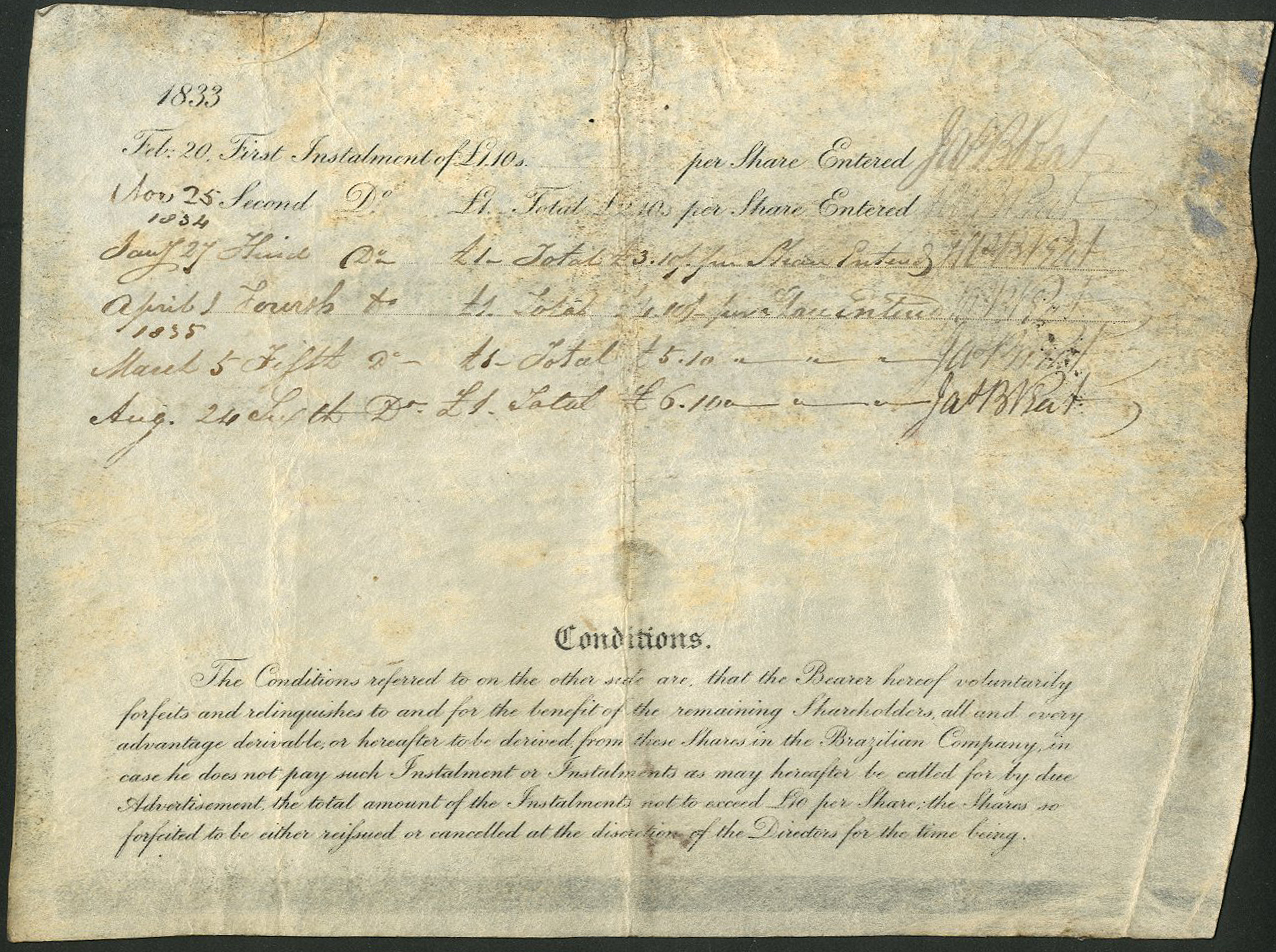 1833
Feb: 20. First Instalment of £1.10s. per Share Entered Jas B Peat
Nov 25 Second Do £1 – Total £2.10s per Share Entered
1834
Jany 27 Third Do £1 – Total £3.10/ per Share Entered Jas B Peat
April 1 Fourth Do £1. Total £4.10/ per Share Entered Jas B Peat
1835
March 5 Fifth Do £1 – Total £5.10 " " " Jas B Peat
Aug. 24 Sixth Do £1. Total £6.10 " " " Jas B Peat
Conditions.
The Conditions referred to on the other side are, that the Bearer hereof voluntarily
forfeits and relinquishes to and for the benefit of the remaining Shareholders, all and every
advantage derivable, or hereafter to be derived, from these Shares in the Brazilian Company, in
case he does not pay such Instalment or Instalments as may hereafter be called for by due
Advertisement, the total amount of the Instalments not to exceed £10 per Share; the Shares so
forfeited to be either reissued or cancelled at the discretion of the Directors for the time being.